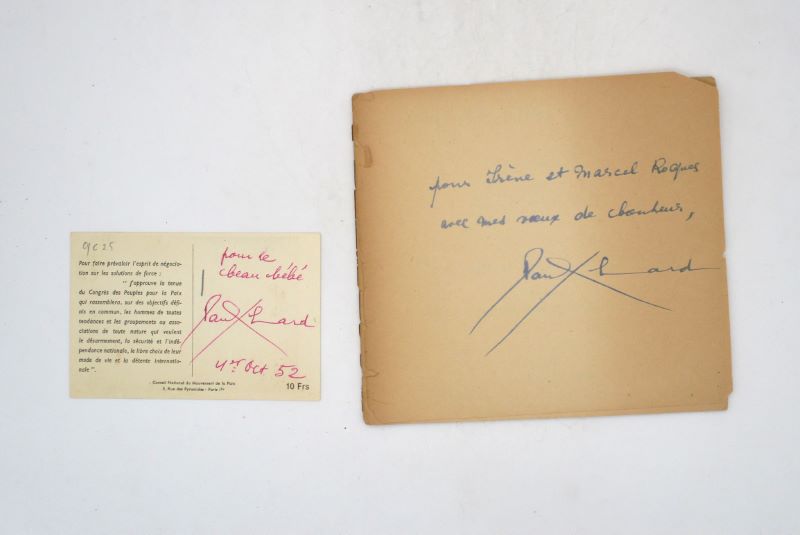 9e25
Pour faire prévaloir l'esprit de négocia-
tion sur les solutions de force :
" J'approuve la tenue
du Congrès des Peuples pour la Paix
qui rassemblera, sur des objectifs défi-
nis en commun, les hommes de toutes
tendances et les groupements ou asso-
ciations de toute nature qui veulent
le désarmement, la sécurité et l'indé-
pendance nationale, le libre choix de leur
mode de vie et la détente internatio-
nale ".
pour le
beau bébé
Paul Eluard
1er Oct 52
Conseil National du Mouvement de la Paix
2, Rue des Pyramides - Paris 1er
10 Frs
pour Irène et Marcel Roques
avec mes vœux de bonheur,
Paul Eluard